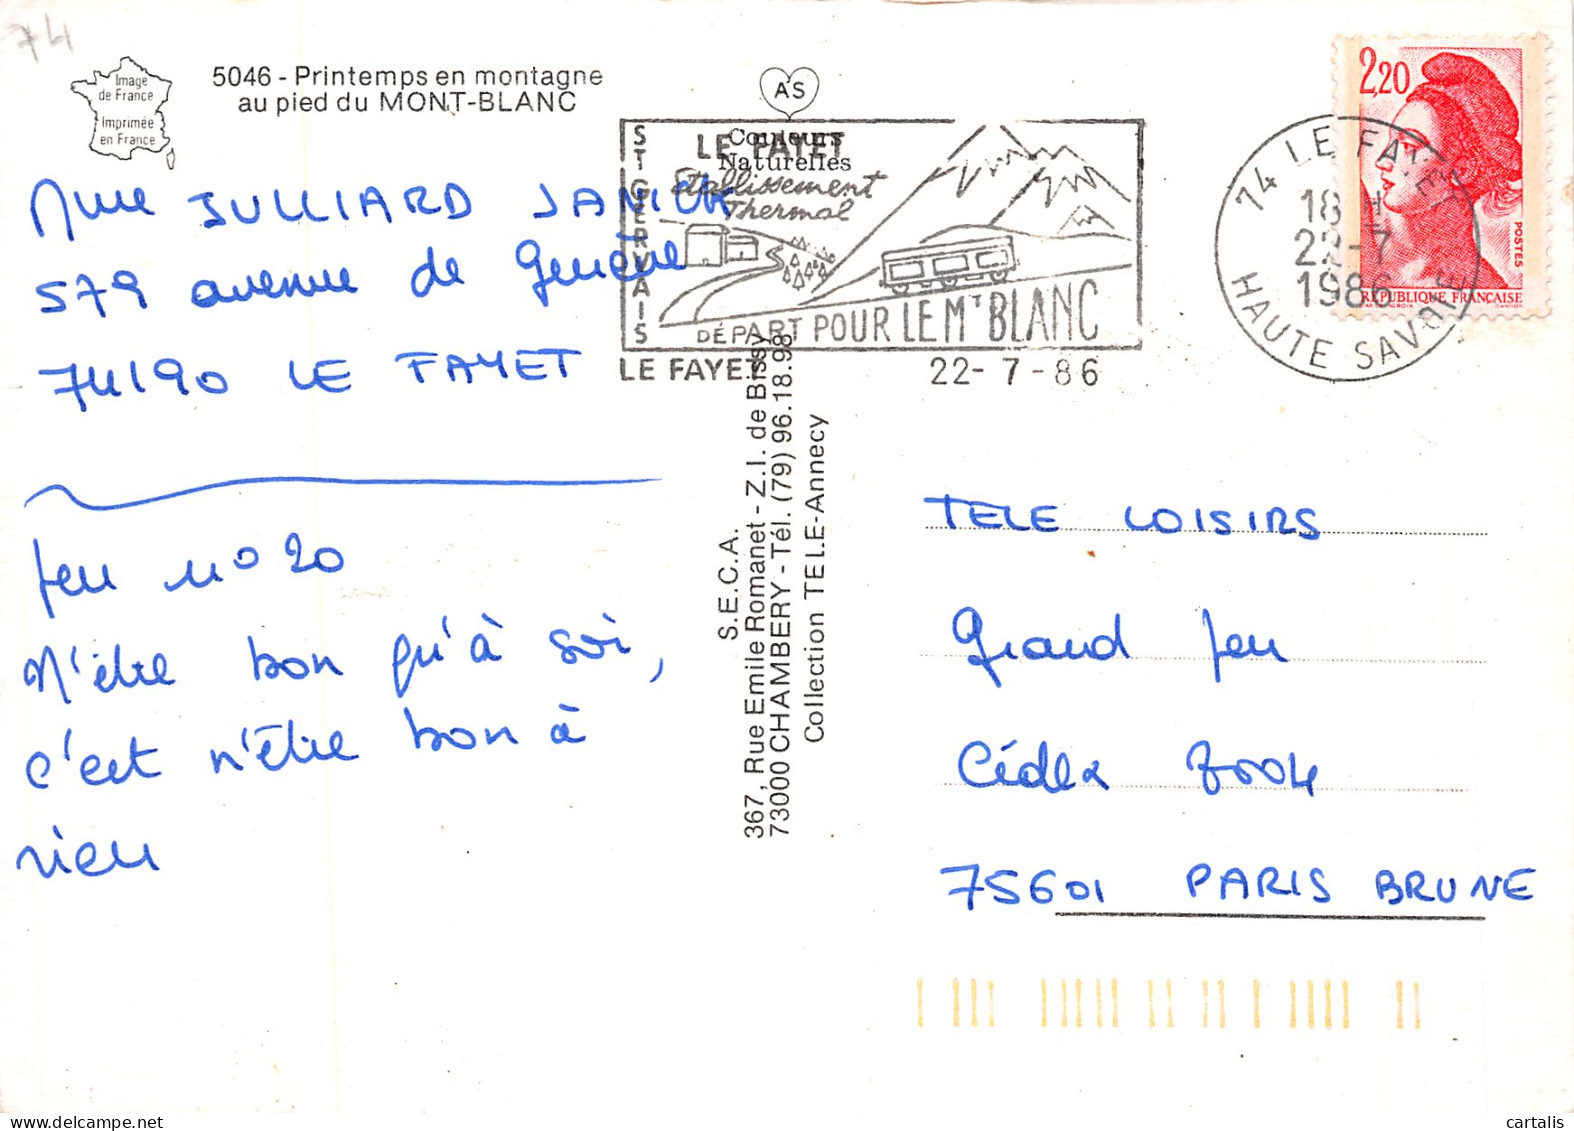 74
Image
de France
Imprimée
en France
5046 - Printemps en montagne
au pied du MONT-BLANC
A'S
Couleurs
Naturelles
LE FAYET
Etablissement
Thermal
ST GERVAIS
DÉPART POUR LE MT BLANC
LE FAYET
22-7-86
74 LE FAYET
18 H
22-7
1986
HAUTE SAVOIE
2,20
POSTES
REPUBLIQUE FRANÇAISE
Mme JULLIARD JANICK
579 avenue de Genève
74190 LE FAYET
Jeu n° 20
N'être bon qu'à soi,
c'est n'être bon à
rien
S.E.C.A.
367, Rue Emile Romanet - Z.I. de Bissy
73000 CHAMBERY - Tél. (79) 96.18.98
Collection TELE-Annecy
TELE LOISIRS
Grand Jeu
Cédex 7004
75601 PARIS BRUNE
cartalis